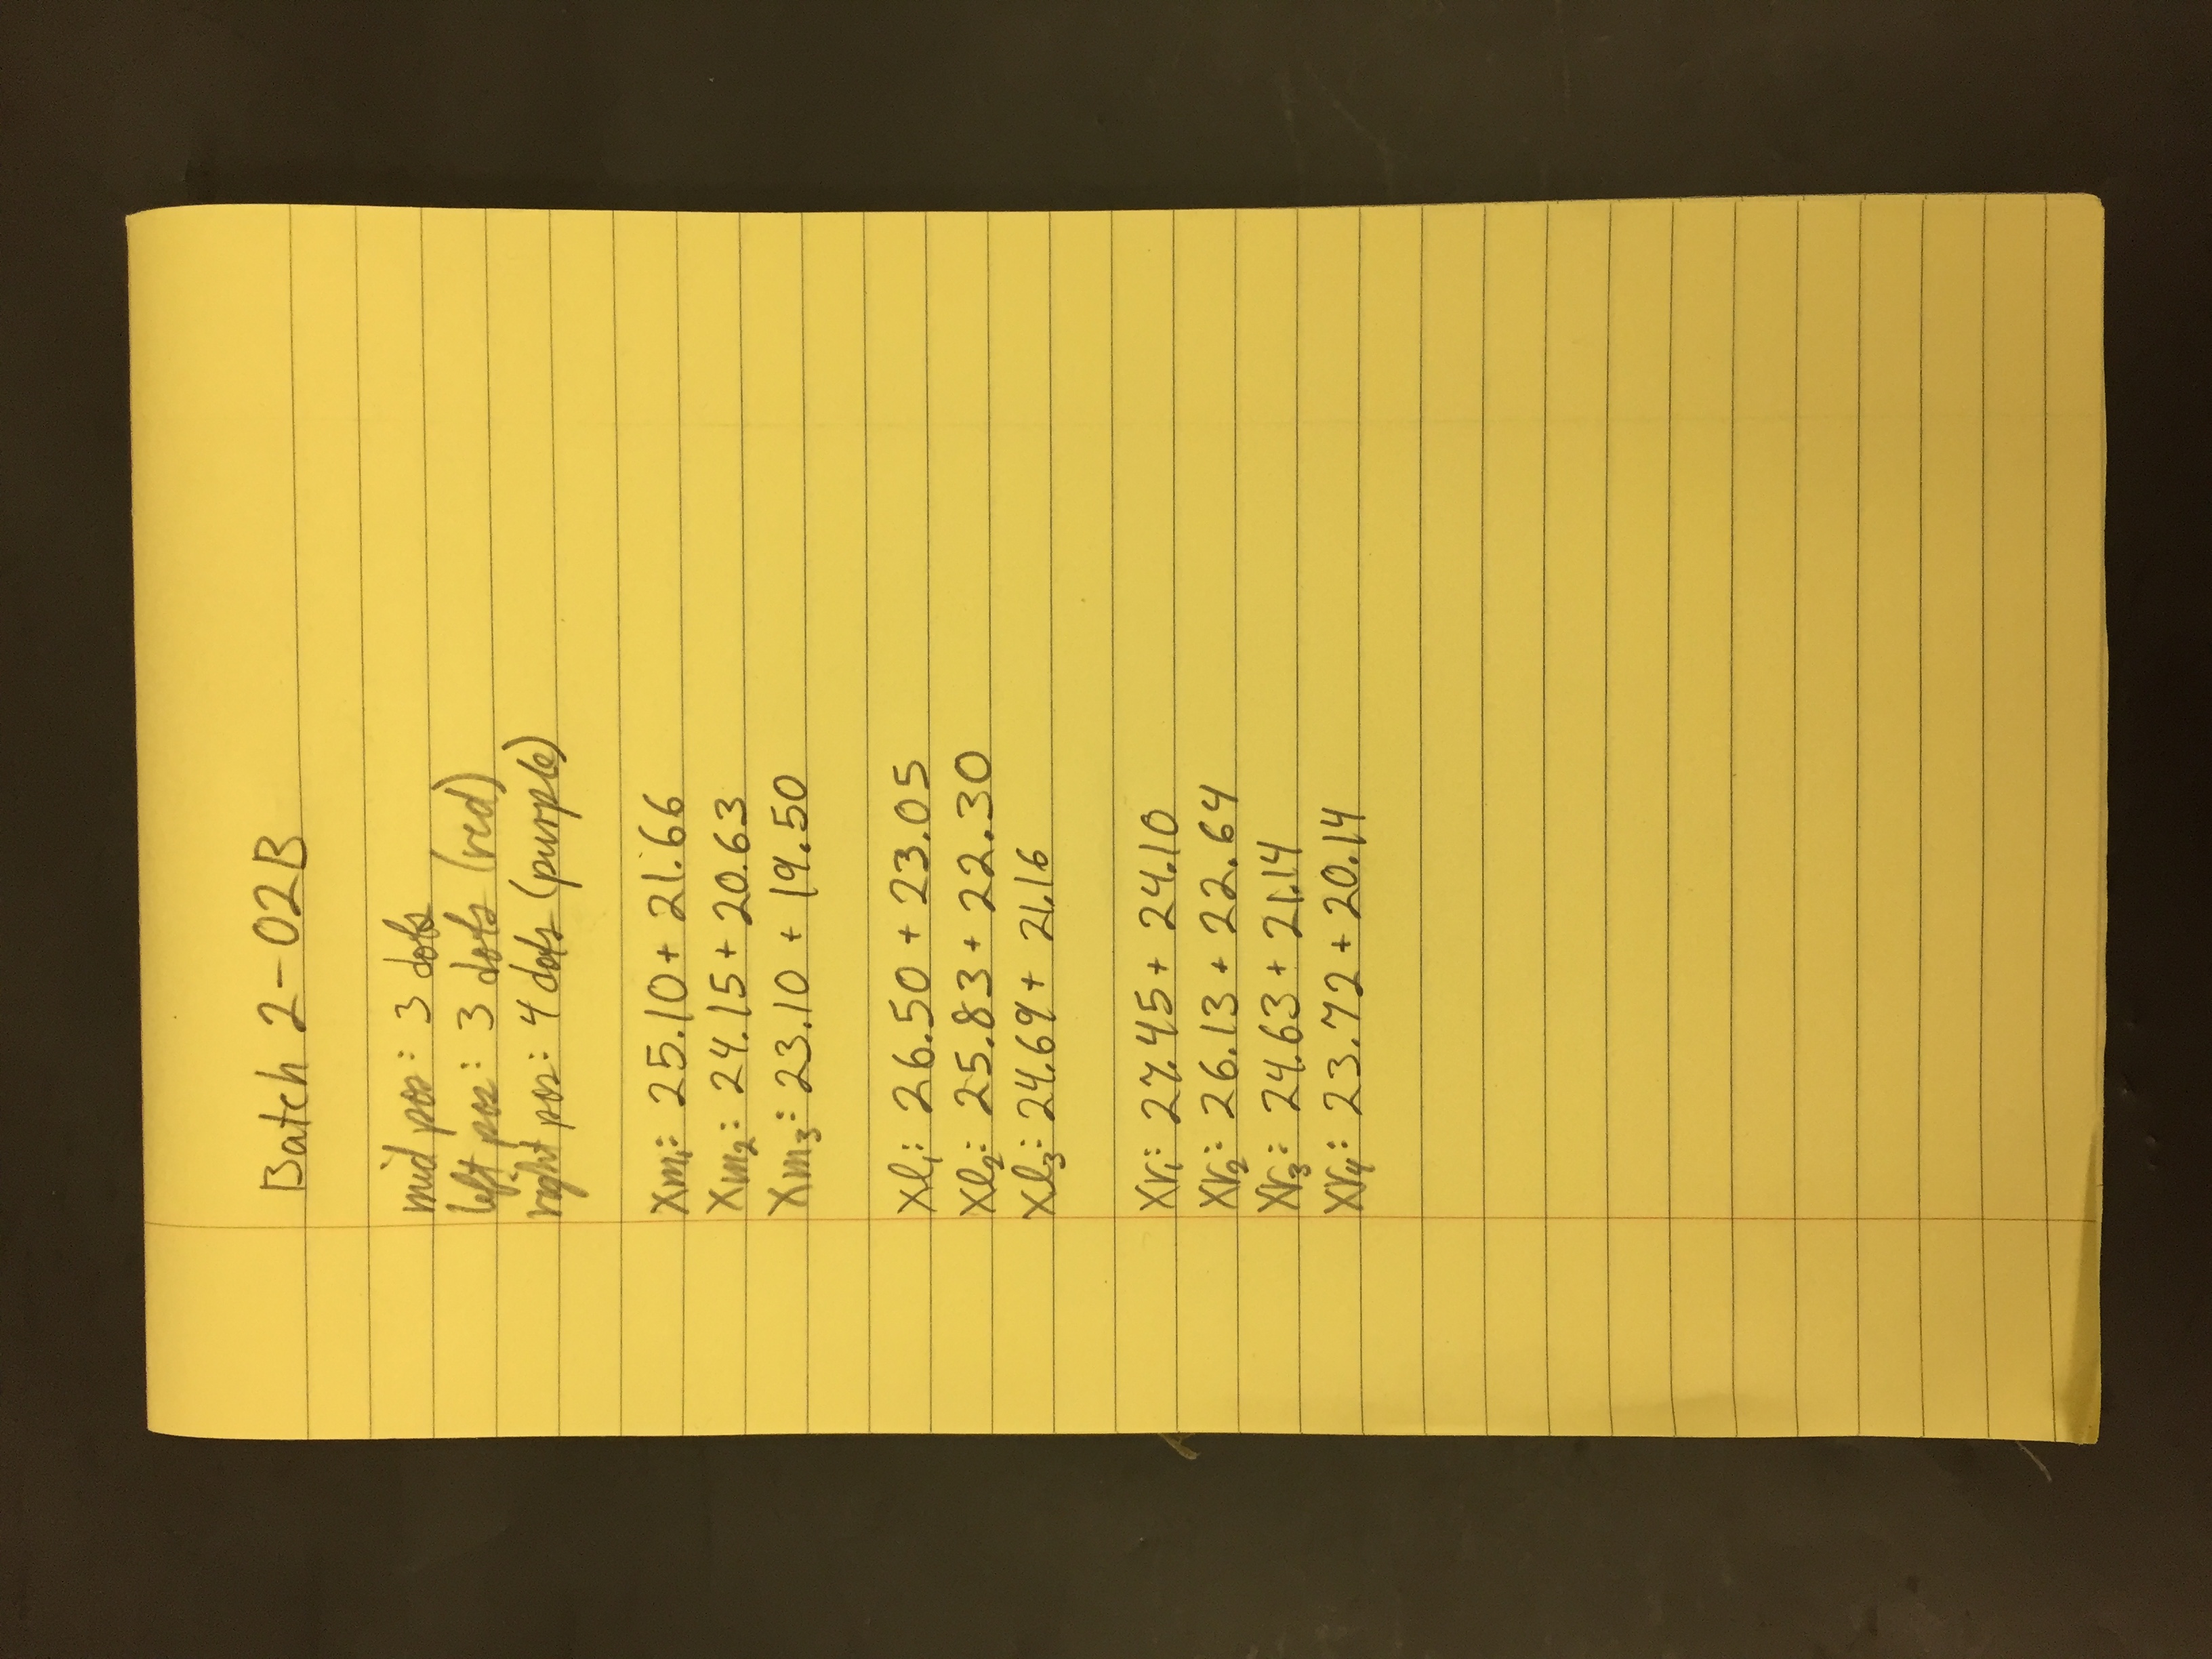 Batch 2-02B
mid pos: 3 dots
left pos: 3 dots (red)
right pos: 4 dots (purple)
Xm₁: 25.10 + 21.66
Xm₂: 24.15 + 20.63
Xm₃: 23.10 + 19.50
Xl₁: 26.50 + 23.05
Xl₂: 25.83 + 22.30
Xl₃: 24.69 + 21.16
Xr₁: 27.45 + 24.10
Xr₂: 26.13 + 22.64
Xr₃: 24.63 + 21.14
Xr₄: 23.72 + 20.14